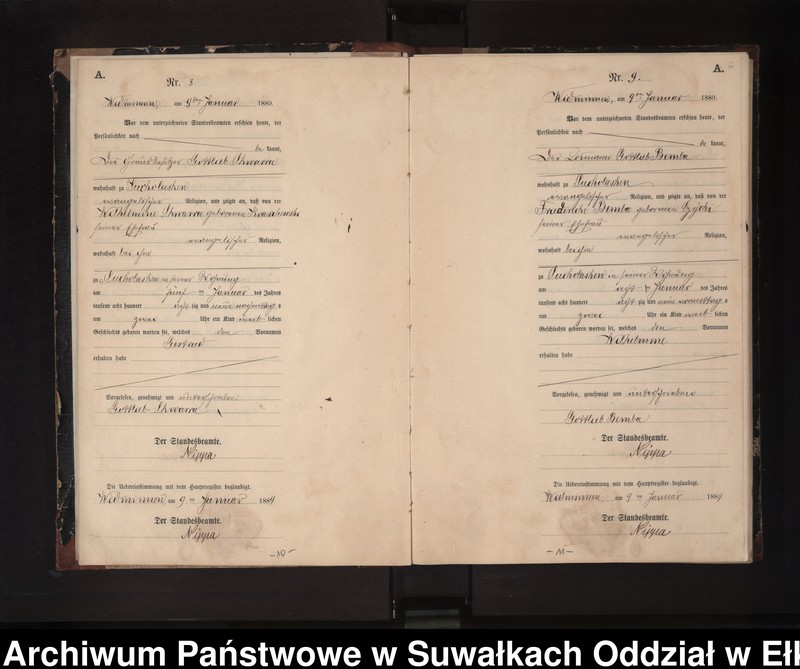 A.
Nr. 8
Widminnen, am 9ten Januar 1889.
Vor dem unterzeichneten Standesbeamten erschien heute, der
Persönlichkeit nach
be kannt,
Der Grundbesitzer Gottlieb
wohnhaft zu Sucholasken
evangelischer Religion, und zeigte an, daß von der
Wilhelmine geborenen
seiner Ehefrau
evangelischer Religion,
wohnhaft bei ihm
zu Sucholasken in seiner Wohnung
am fünf ten Januar des Jahres
tausend acht hundert acht zig und neun nachmittags
um zwei Uhr ein Kind weib lichen
Geschlechts geboren worden sei, welches den Vornamen
Gertrud
erhalten habe
Vorgelesen, genehmigt und unterschrieben
Gottlieb
Der Standesbeamte.
Nippa
Die Uebereinstimmung mit dem Hauptregister beglaubigt.
Widminnen am 9 ten Januar 1889
Der Standesbeamte.
Nippa
-10-
A.
Nr. 9.
Widminnen, am 9ten Januar 1889.
Vor dem unterzeichneten Standesbeamten erschien heute, der
Persönlichkeit nach
be kannt,
Der Gottlieb Bemba
wohnhaft zu Sucholasken
evangelischer Religion, und zeigte an, daß von der
Friederike Bemba geborenen
seiner Ehefrau
evangelischer Religion,
wohnhaft bei ihm
zu Sucholasken in seiner Wohnung
am acht ten Januar des Jahres
tausend acht hundert acht zig und neun vormittags
um zwei Uhr ein Kind weib lichen
Geschlechts geboren worden sei, welches den Vornamen
Wilhelmine
erhalten habe
Vorgelesen, genehmigt und unterschrieben
Gottlieb Bemba
Der Standesbeamte.
Nippa
Die Uebereinstimmung mit dem Hauptregister beglaubigt.
Widminnen, am 9 ten Januar 1889
Der Standesbeamte.
Nippa
-11-
Archiwum Państwowe w Suwałkach Oddział w Eł